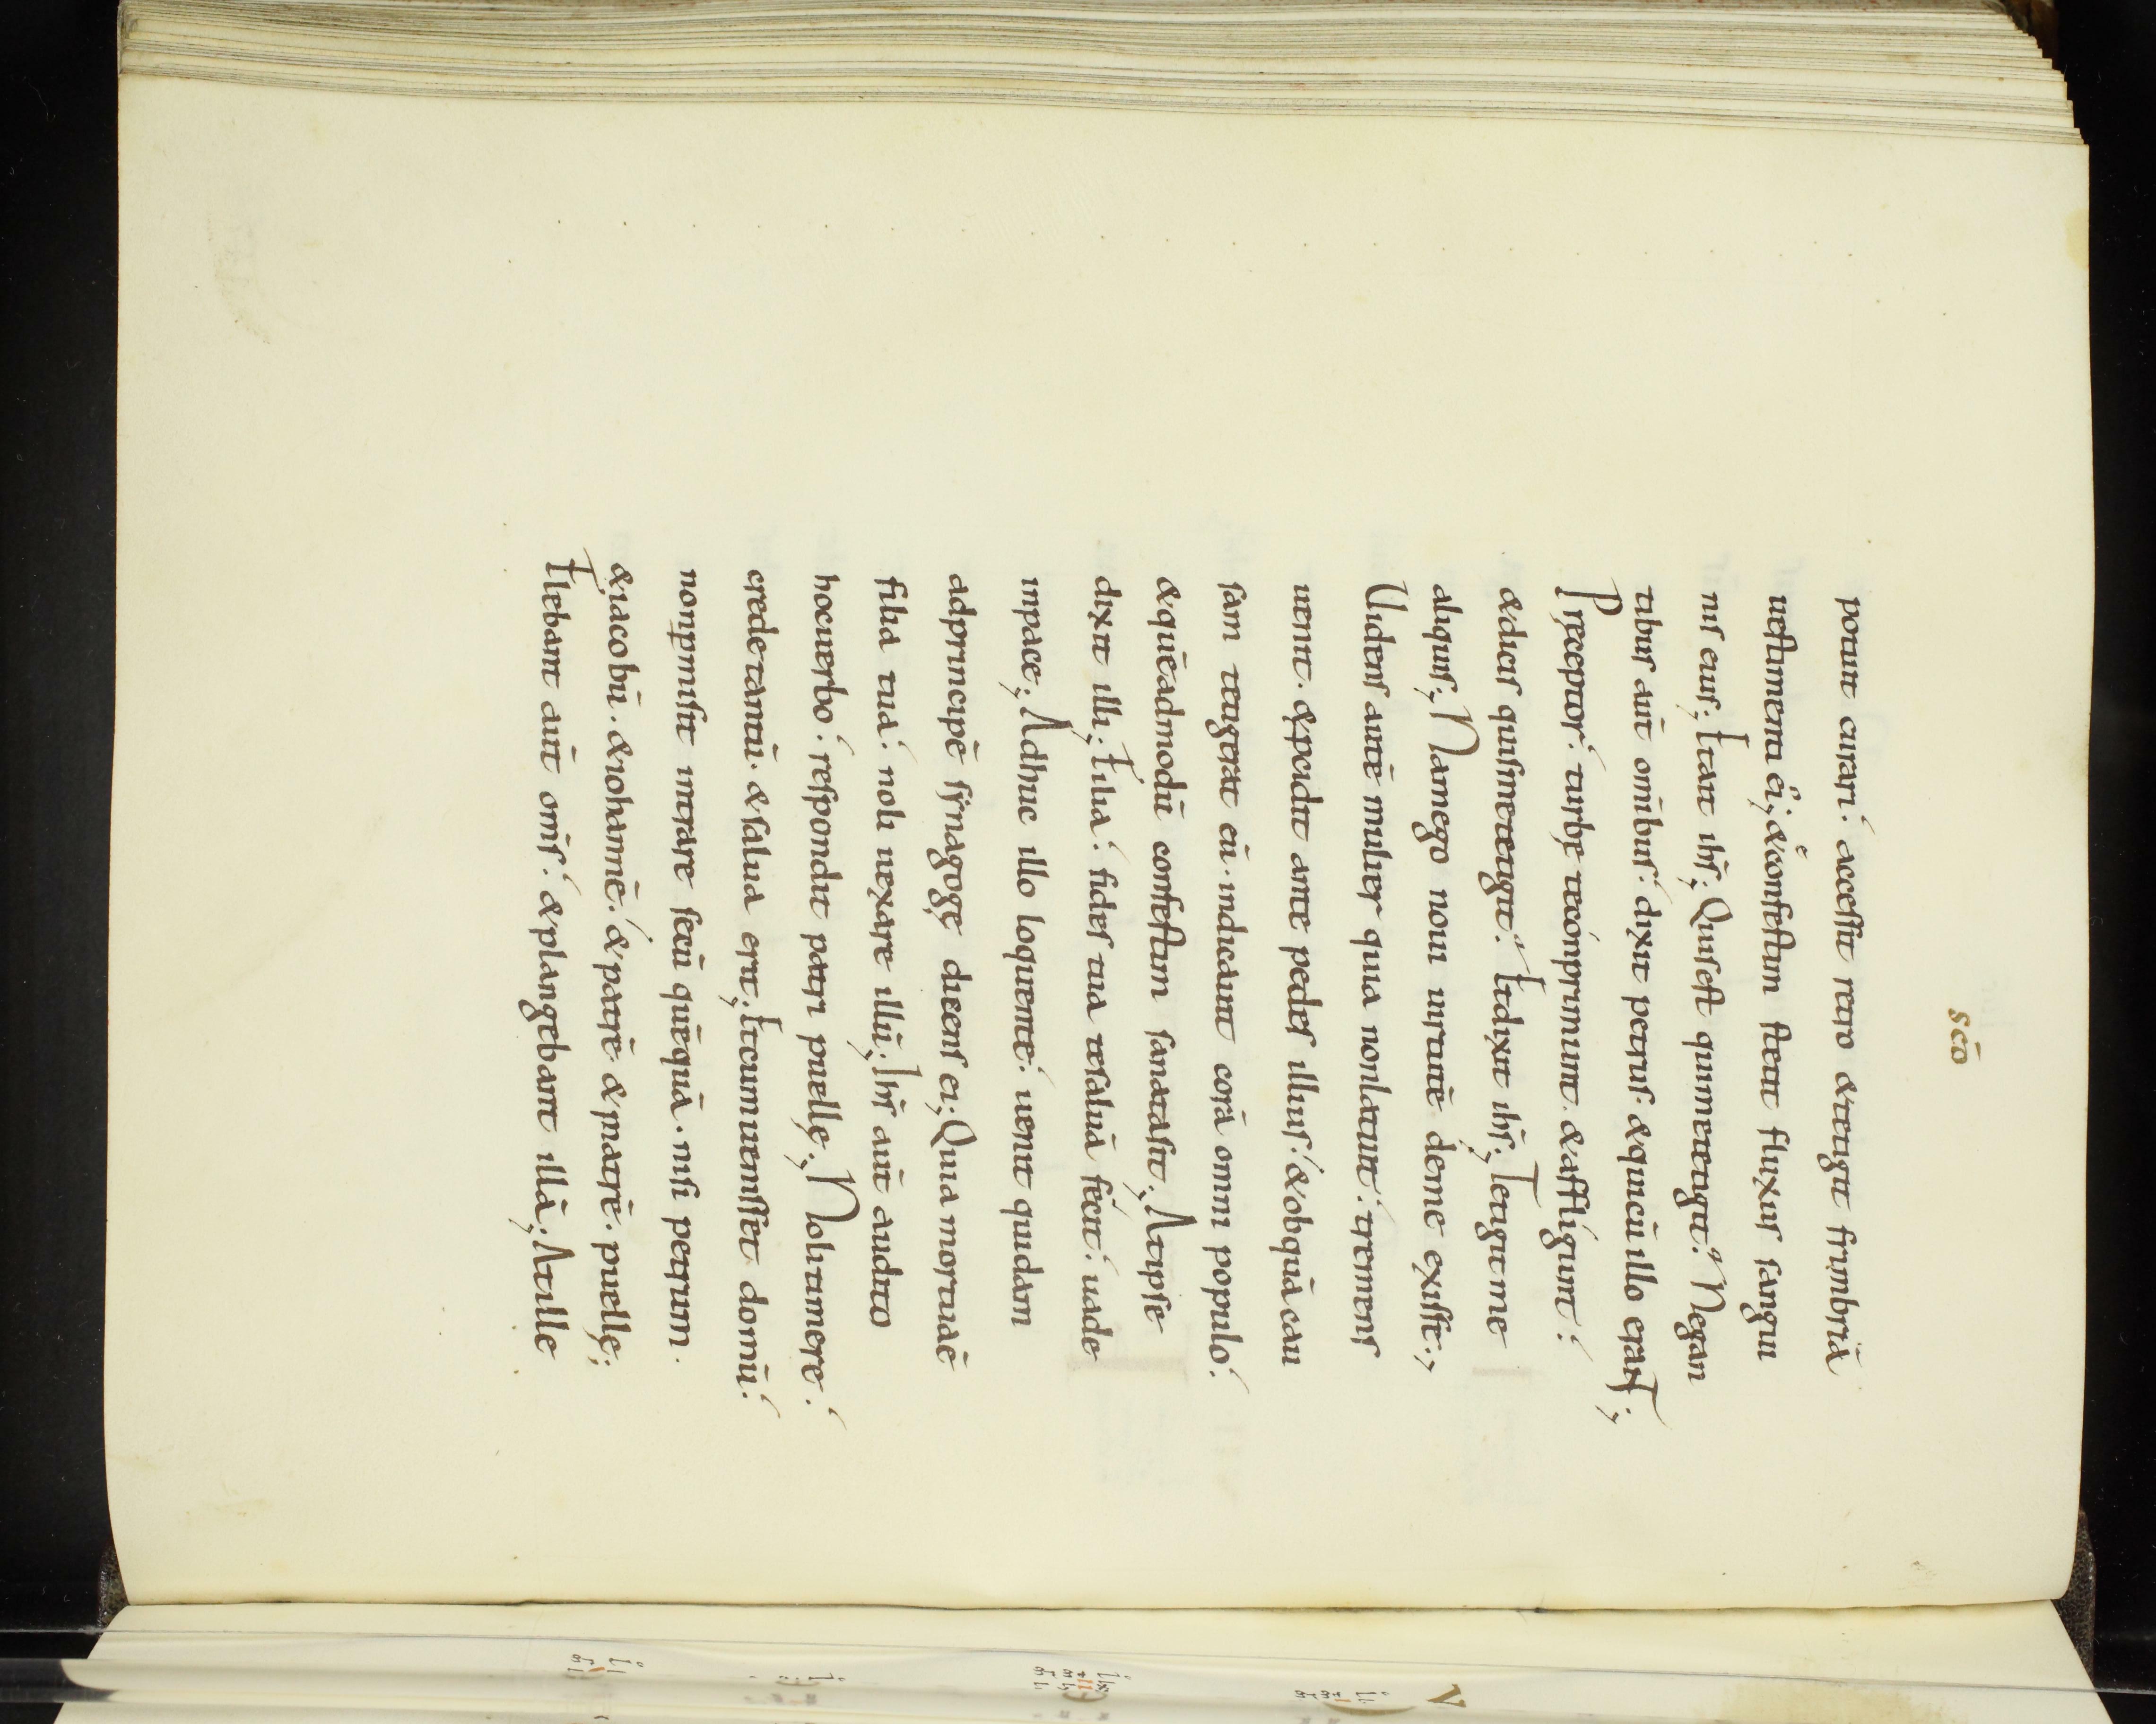 scō
potuit curari. accessit retro & tetigit frimbriā
uestimenti ei'; & confestim stetit fluxus sangui
nis eius; Etait ihs; Quisest quimetetigit. Negan
tibus aūt omībus. dixit petrus & quicū illo erant;
Pręceptor. turbę tecomprimunt. & affligunt.
&dicis quismetetigit. Etdixit ihs; Tetigitme
aliquis; Namego noui uirtutē deme exisse;
Uidens autē mulier quia nonlatuit. tremens
uenit. & pcidit ante pedes illius. & obquā cau
sam tetigerit eū. indicauit corā omni populo.
& quēadmodū confestim sanatasit; Atipse
dixit illi; Filia. fides tua tesaluā fecit. uade
inpace; Adhuc illo loquente. uenit quidam
adprincipē synagogę dicens ei; Quia mortuaē
filia tua. noli uexare illū; Ihs aūt audito
hocuerbo. respondit patri puellę; Nolitimere.
credetantū. & salua erit; Etcumuenisset domū.
nonpmisit intrare secū quēquā. nisi petrum.
&iacobū. &iohannē. & patrē & matrē. puellę;
Flebant aūt omīs. & plangebant illā; Atille